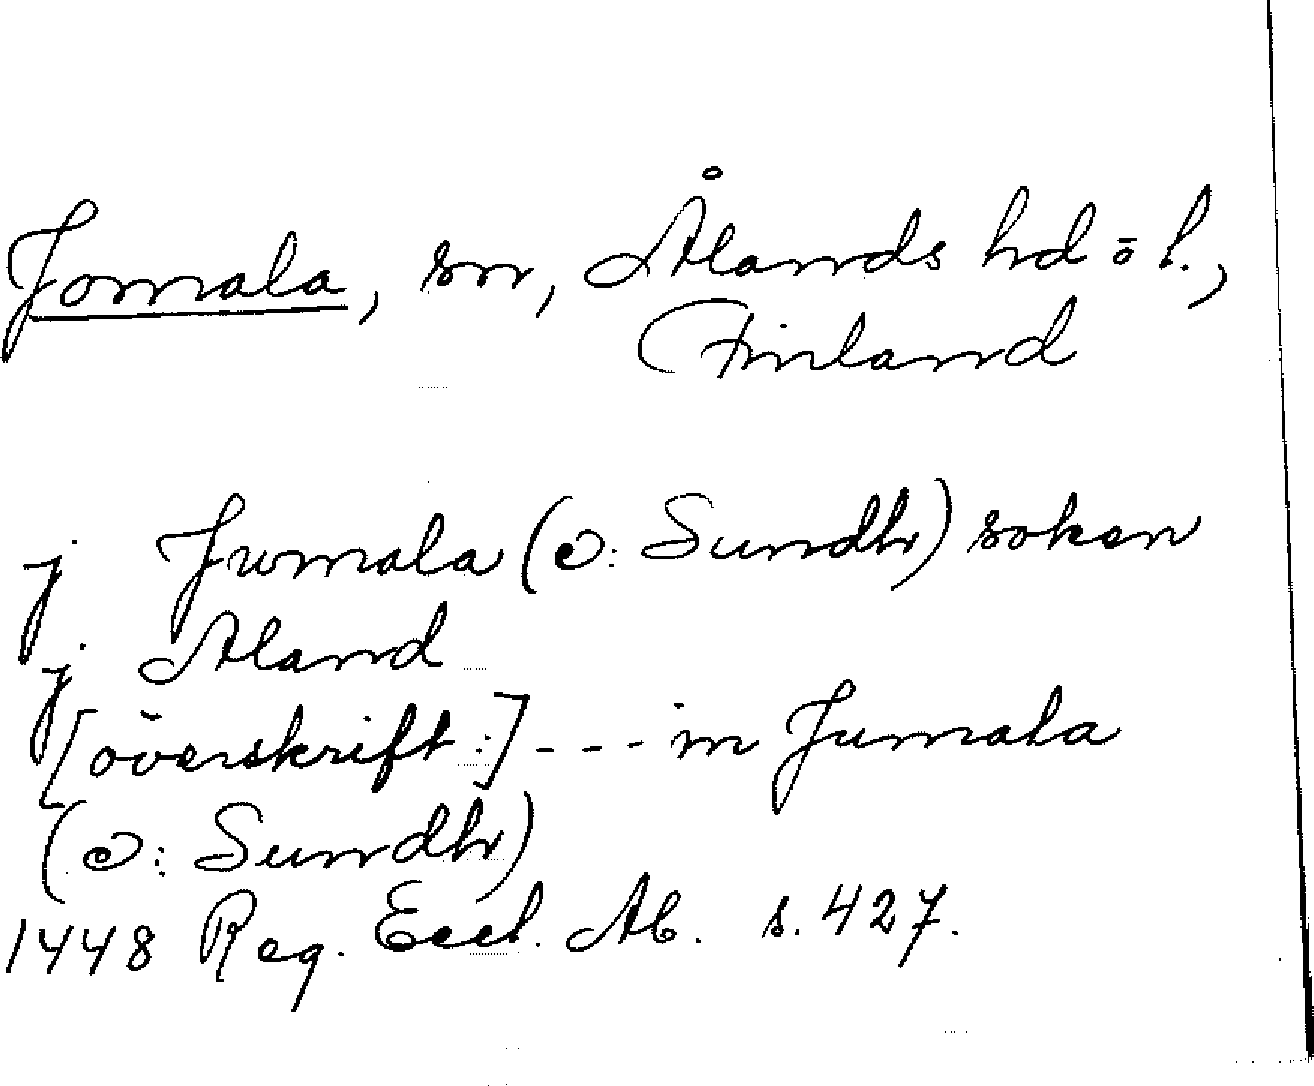 Jomala, sn, Ålands hd o l.,
Finland
j Jwmala (ɔ: Sundh) soken
j Aland
[överskrift:] - - - in Jumala
(ɔ: Sundh)
1448 Reg. Eccl. Ab. s. 427.